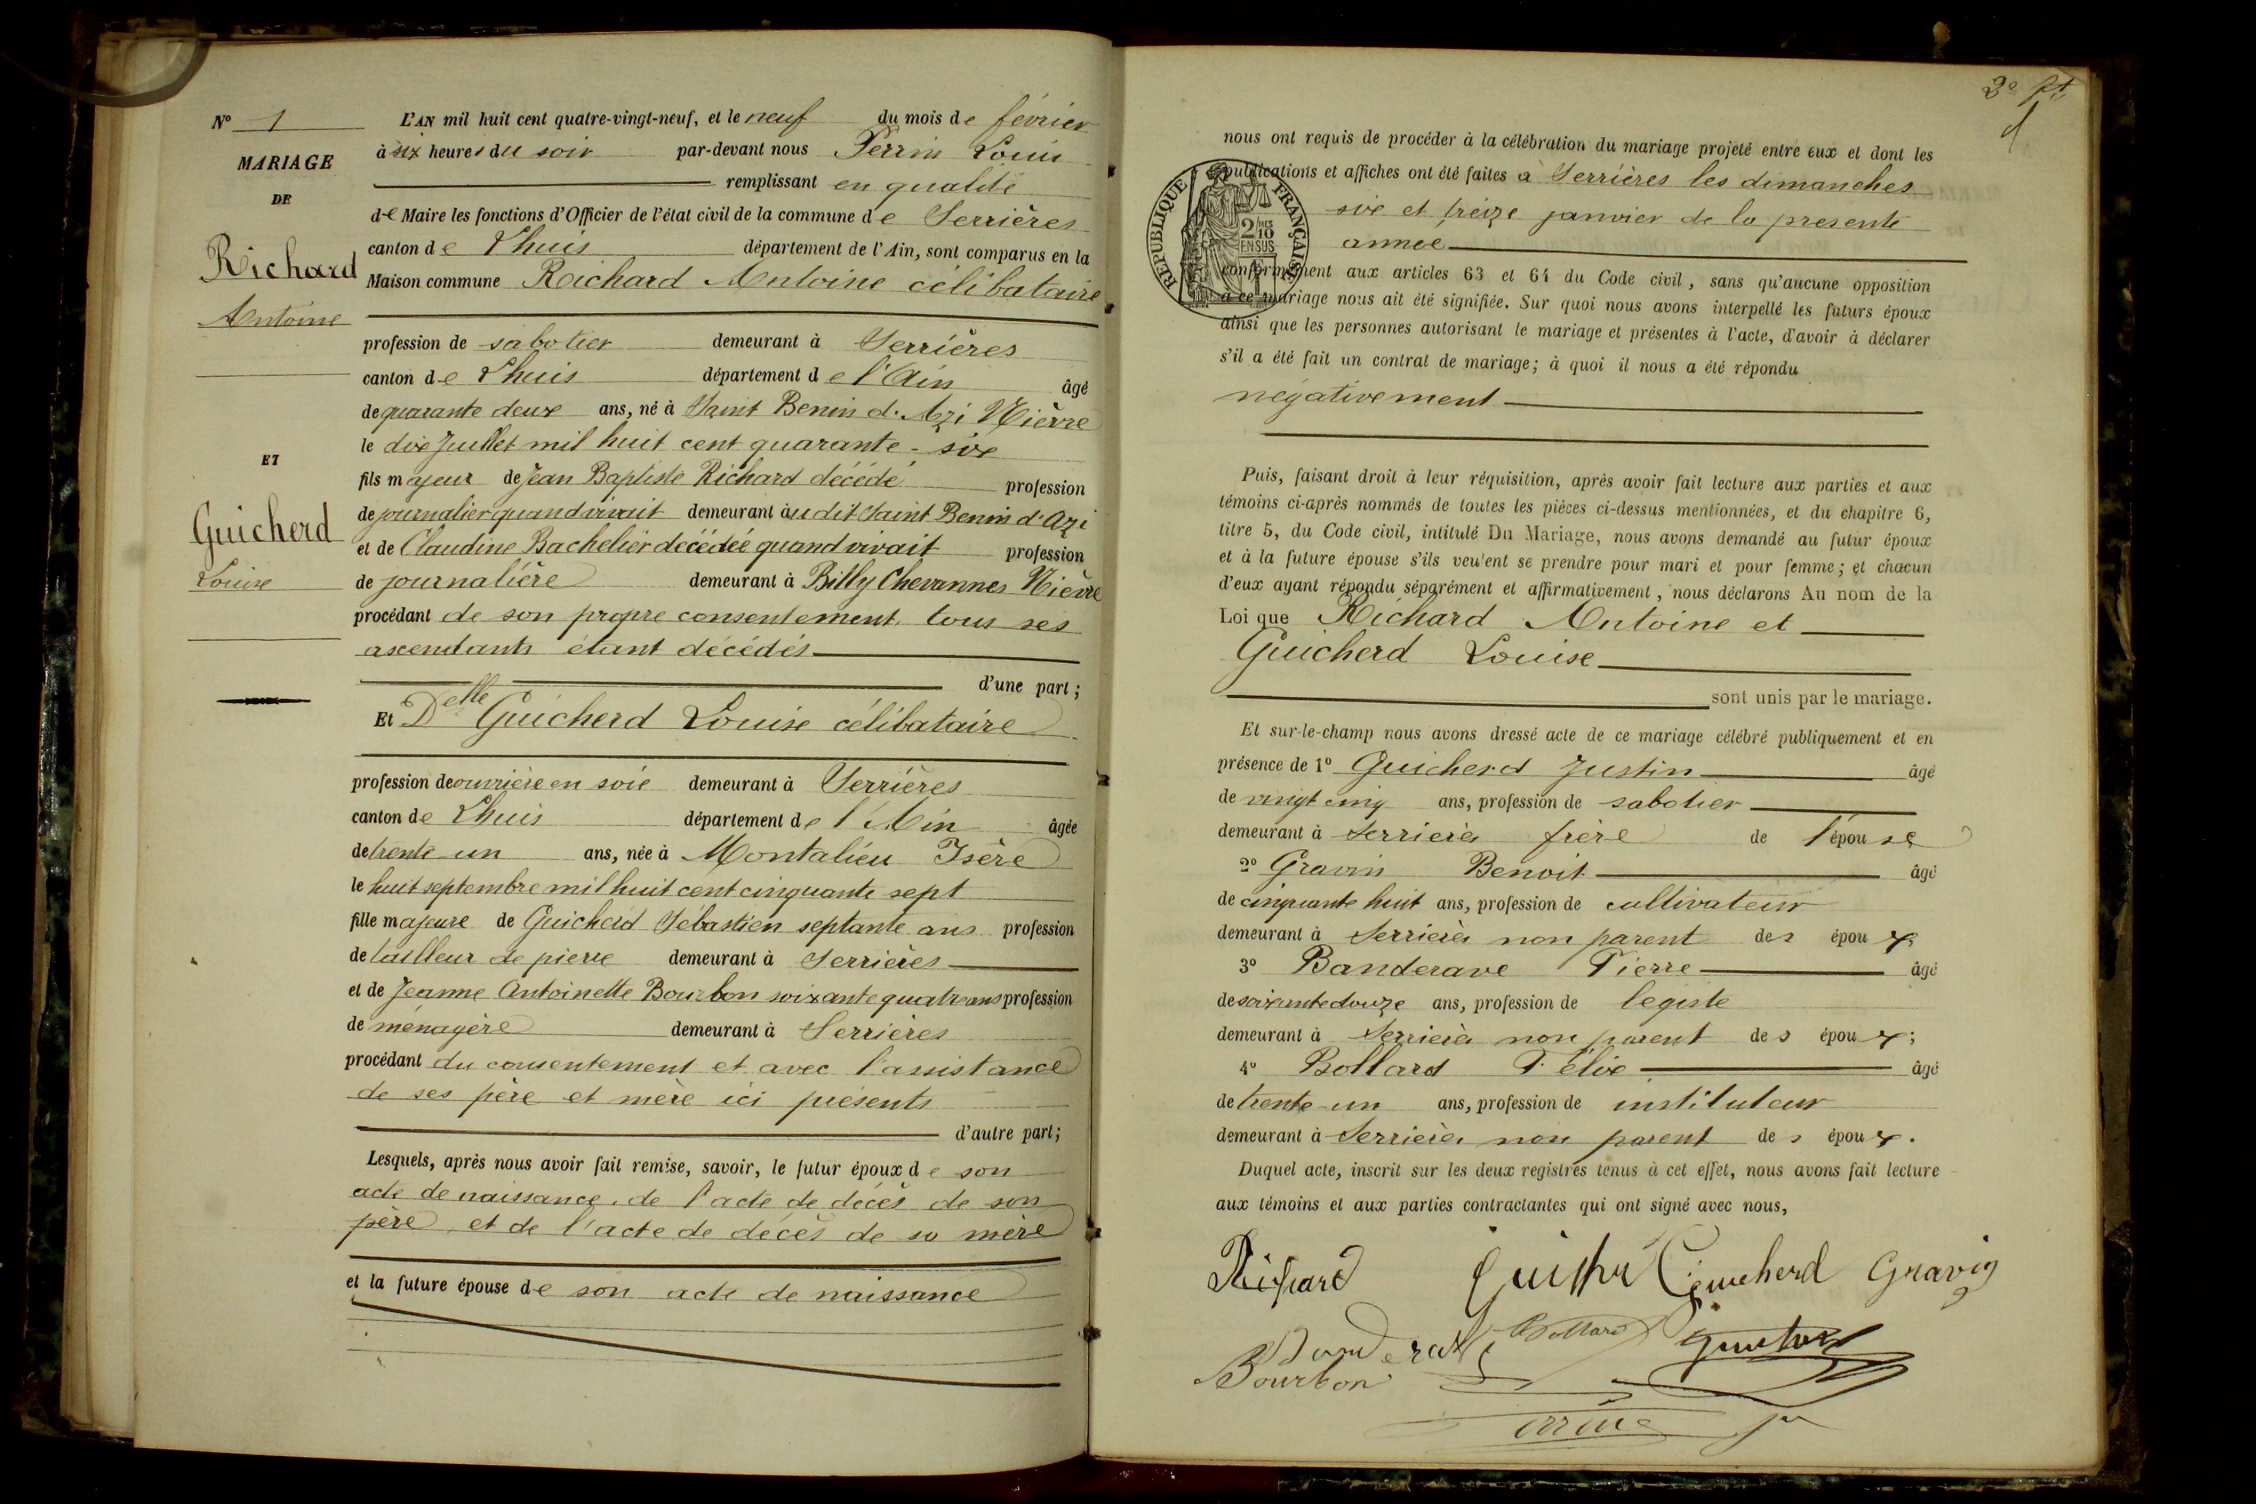 N° 1
MARIAGE
DE
Richard
Antoine
ET
Guicherd
Louise
L'AN mil huit cent quatre-vingt-neuf, et le neuf du mois de février
à six heures du soir par-devant nous Perrin Louis
remplissant en qualité
de Maire les fonctions d'Officier de l'état civil de la commune de Serrières
canton de Lhuis département de l'Ain, sont comparus en la
Maison commune Richard Antoine célibataire
profession de sabotier demeurant à Serrières
canton de Lhuis département de l'Ain âgé
de quarante deux ans, né à Saint Benin d'Azi Nièvre
le dix Juillet mil huit cent quarante-six
fils majeur de Jean Baptiste Richard décédé profession
de journalier quand vivait demeurant audit Saint Benin d'Azi
et de Claudine Bachelier décédée quand vivait profession
de journalière demeurant à Billy Chevannes Nièvre
procédant de son propre consentement, tous ses
ascendants étant décédés
d'une part;
Et Delle Guicherd Louise célibataire
profession de ouvrière en soie demeurant à Serrières
canton de Lhuis département de l'Ain âgée
de trente-un ans, née à Montalieu Isère
le huit septembre mil huit cent cinquante sept
fille majeure de Guicherd Sébastien septante ans profession
de tailleur de pierre demeurant à Serrières
et de Jeanne Antoinette Bourbon soixante quatre ans profession
de ménagère demeurant à Serrières
procédant du consentement et avec l'assistance
de ses père et mère ici présents
d'autre part;
Lesquels, après nous avoir fait remise, savoir, le futur époux de son
acte de naissance, de l'acte de décès de son
père et de l'acte de décès de sa mère
et la future épouse de son acte de naissance
nous ont requis de procéder à la célébration du mariage projeté entre eux et dont les
publications et affiches ont été faites à Serrières les dimanches
six et treize janvier de la presente
année
conformément aux articles 63 et 64 du Code civil, sans qu'aucune opposition
à ce mariage nous ait été signifiée. Sur quoi nous avons interpellé les futurs époux
ainsi que les personnes autorisant le mariage et présentes à l'acte, d'avoir à déclarer
s'il a été fait un contrat de mariage; à quoi il nous a été répondu
négativement
RÉPUBLIQUE FRANÇAISE
2/10mes
EN SUS
Puis, faisant droit à leur réquisition, après avoir fait lecture aux parties et aux
témoins ci-après nommés de toutes les pièces ci-dessus mentionnées, et du chapitre 6,
titre 5, du Code civil, intitulé Du Mariage, nous avons demandé au futur époux
et à la future épouse s'ils veulent se prendre pour mari et pour femme; et chacun
d'eux ayant répondu séparément et affirmativement, nous déclarons Au nom de la
Loi que Richard Antoine et
Guicherd Louise
sont unis par le mariage.
Et sur-le-champ nous avons dressé acte de ce mariage célébré publiquement et en
présence de 1° Guicherd Justin âgé
de vingt cinq ans, profession de sabotier
demeurant à Serrières frère de l'épouse
2° Gravin Benoit âgé
de cinquante huit ans, profession de cultivateur
demeurant à Serrières non parent des époux;
3° Banderave Pierre âgé
de soixante douze ans, profession de legiste
demeurant à Serrières non parent des époux;
4° Bollard Félix âgé
de trente-un ans, profession de instituteur
demeurant à Serrières non parent des époux.
Duquel acte, inscrit sur les deux registres tenus à cet effet, nous avons fait lecture
aux témoins et aux parties contractantes qui ont signé avec nous,
Richard Guicherd Gravin
Bollard
Bourbon